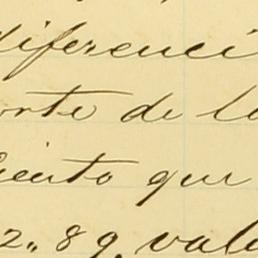 diferenci
orte de lo
iento que
2,, 89, vale